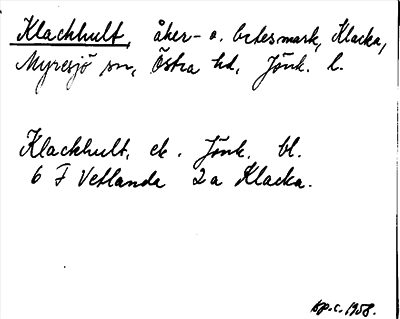 Klackhult, åker- o. betesmark, Klacka,
Myresjö sn, Östra hd, Jönk. l.
Klackhult, ek. Jönk. bl.
6 F Vetlanda 2a Klacka.
sp.c. 1958.